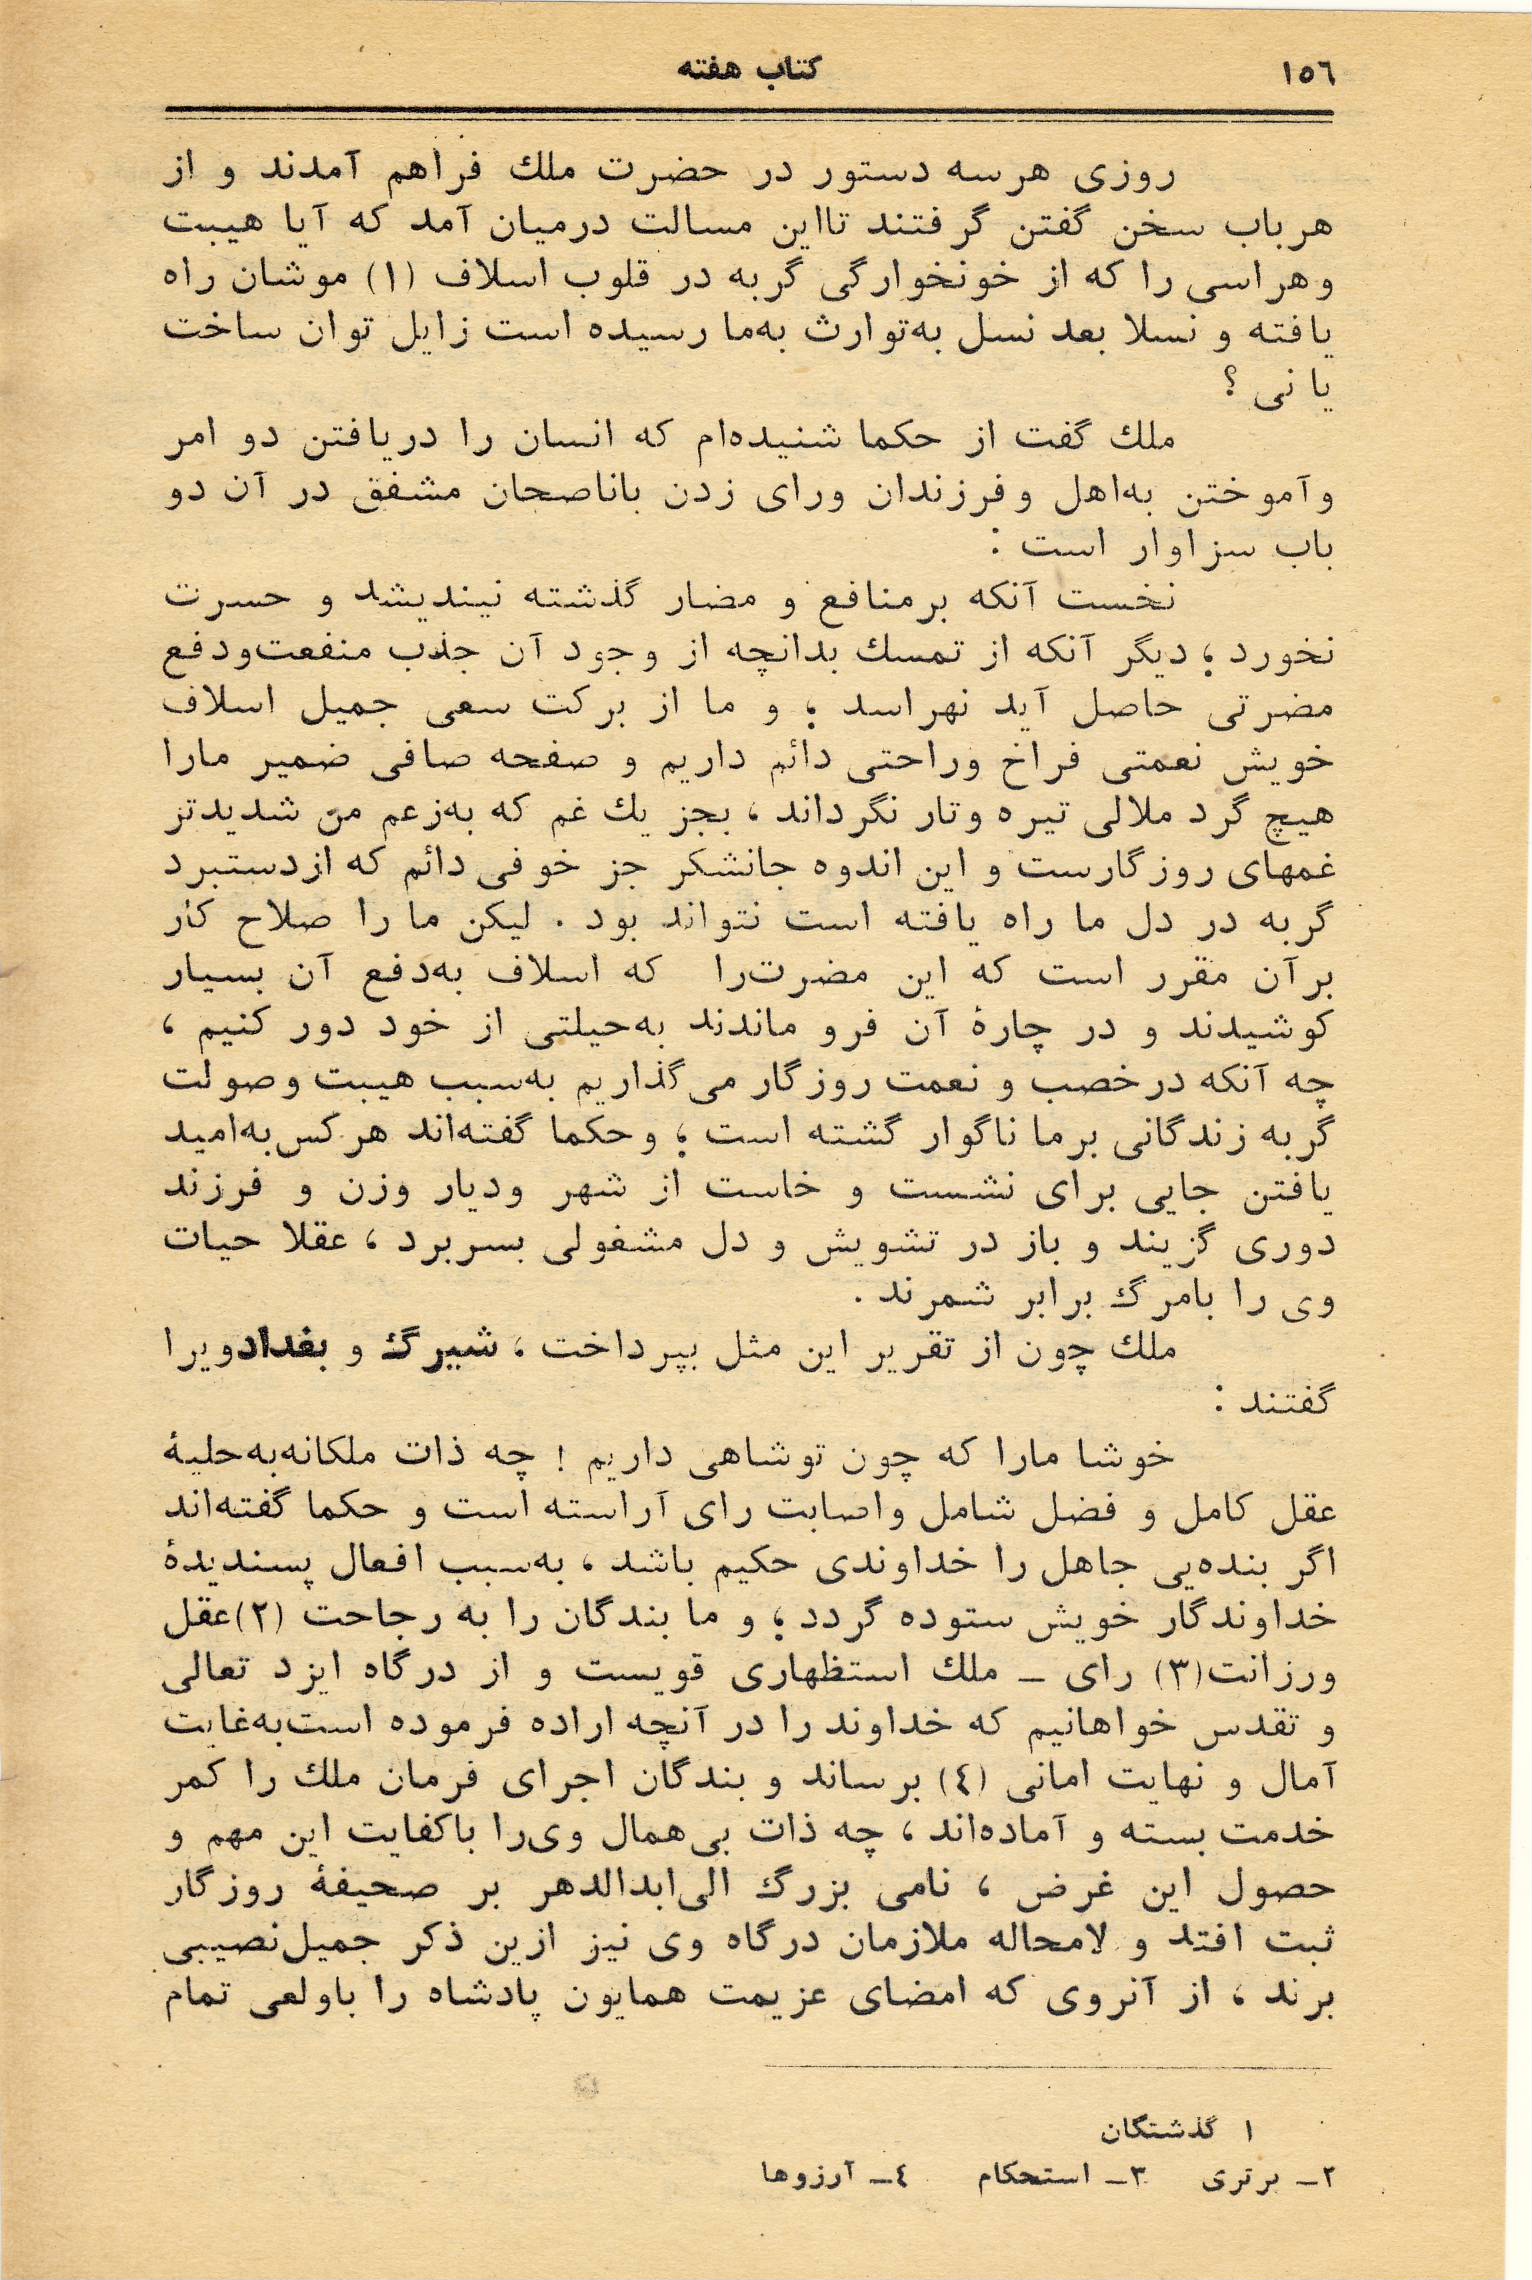 ١٥٦
کتاب هفته
روزی هرسه دستور در حضرت ملك فراهم آمدند و از
هرباب سخن گفتن گرفتند تااین مسالت درمیان آمد که آیا هیبت
وهراسی را که از خونخوارگی گربه در قلوب اسلاف (۱) موشان راه
یافته و نسلا بعد نسل به‌توارث به‌ما رسیده است زایل توان ساخت
یا نی ؟
ملك گفت از حکما شنیده‌ام که انسان را دریافتن دو امر
وآموختن به‌اهل وفرزندان ورای زدن باناصحان مشفق در آن دو
باب سزاوار است :
نخست آنکه برمنافع و مضار گذشته نیندیشد و حسرت
نخورد ؛ دیگر آنکه از تمسك بدانچه از وجود آن جذب منفعت‌ودفع
مضرتی حاصل آید نهراسد ؛ و ما از برکت سعی جمیل اسلاف
خویش نعمتی فراخ وراحتی دائم داریم و صفحه صافی ضمیر مارا
هیچ گرد ملالی تیره وتار نگرداند ، بجز یك غم که به‌زعم من شدیدتر
غمهای روزگارست و این اندوه جانشکر جز خوفی دائم که ازدستبرد
گربه در دل ما راه یافته است نتواند بود . لیکن ما را صلاح کار
برآن مقرر است که این مضرت‌را که اسلاف به‌دفع آن بسیار
کوشیدند و در چارهٔ آن فرو ماندند به‌حیلتی از خود دور کنیم ،
چه آنکه درخصب و نعمت روزگار می‌گذاریم به‌سبب هیبت وصولت
گربه زندگانی برما ناگوار گشته است ؛ وحکما گفته‌اند هرکس‌به‌امید
یافتن جایی برای نشست و خاست از شهر ودیار وزن و فرزند
دوری گزیند و باز در تشویش و دل مشغولی بسربرد ، عقلا حیات
وی را بامرگ برابر شمرند .
ملك چون از تقریر این مثل بپرداخت ، شیرگ و بغدادویرا
گفتند :
خوشا مارا که چون توشاهی داریم ! چه ذات ملکانه‌به‌حلیهٔ
عقل کامل و فضل شامل واصابت رای آراسته است و حکما گفته‌اند
اگر بنده‌یی جاهل را خداوندی حکیم باشد ، به‌سبب افعال پسندیدهٔ
خداوندگار خویش ستوده گردد ؛ و ما بندگان را به رجاحت (۲)عقل
ورزانت(۳) رای ـ ملك استظهاری قویست و از درگاه ایزد تعالی
و تقدس خواهانیم که خداوند را در آنچه اراده فرموده است‌به‌غایت
آمال و نهایت امانی (٤) برساند و بندگان اجرای فرمان ملك را کمر
خدمت بسته و آماده‌اند ، چه ذات بی‌همال وی‌را باکفایت این مهم و
حصول این غرض ، نامی بزرگ الی‌ابدالدهر بر صحیفهٔ روزگار
ثبت افتد و لامحاله ملازمان درگاه وی نیز ازین ذکر جمیل‌نصیبی
برند ، از آنروی که امضای عزیمت همایون پادشاه را باولعی تمام
۱ گذشتگان
۲ـ برتری ۳ـ استحکام ٤ـ آرزوها